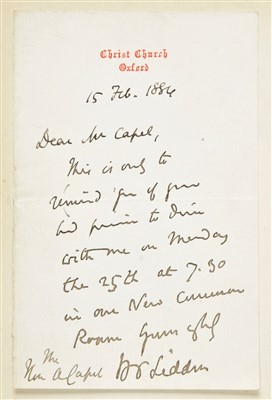 Christ Church
Oxford
15 Feb. 1884
Dear Mr Capel,
This is only to
remind you of your
kind promise to dine
with me on Monday
the 25th at 7.30
in our New Common
Room
The
Hon A Capel H P Liddon